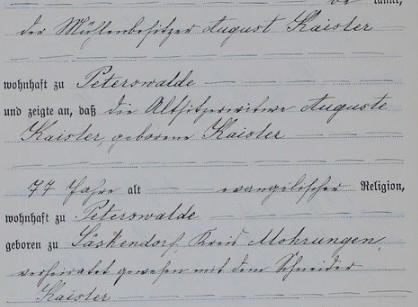 kannt,
der Mühlenbesitzer August Kaister
wohnhaft zu Peterswalde
und zeigte an, daß die Altsitzerwitwe Auguste
Kaister, geborene Kaister
77 Jahre alt evangelischer Religion,
wohnhaft zu Peterswalde
geboren zu Säckendorf, Kreis Mohrungen,
verheiratet gewesen mit dem Schneider
Kaister